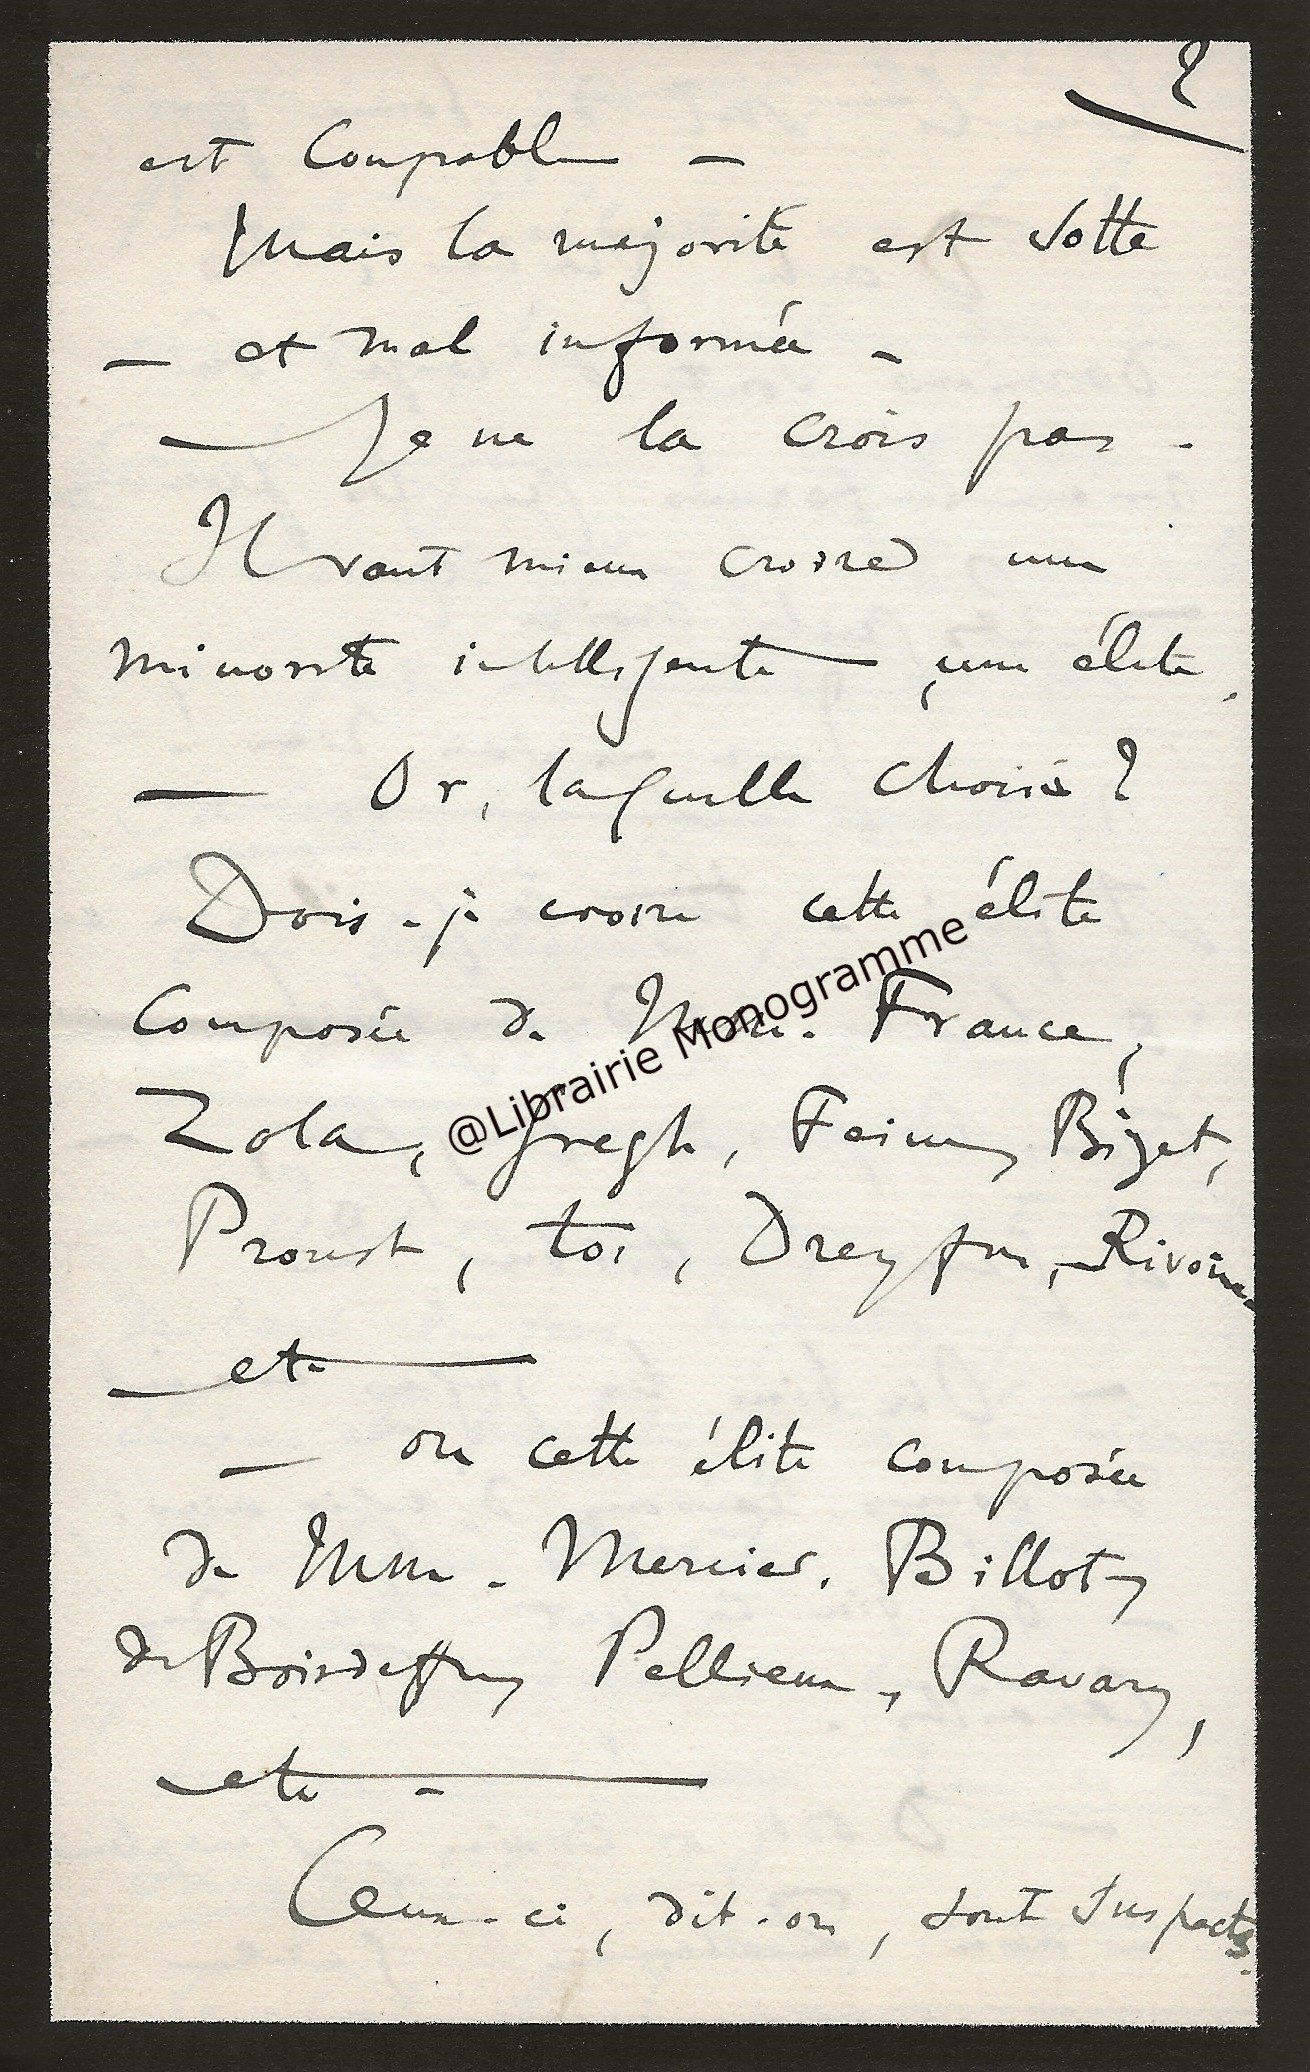 2
est Coupable —
Mais la majorité est sotte
— et mal informée —
— Je ne la crois pas -
Il vaut mieux croire une
minorité intelligente — une élite.
— Or, laquelle choisir ?
Dois-je croire cette élite
composée de MM. France,
@Librairie Monogramme
Zola, Gregh, Bizet,
Proust, toi, Dreyfus, Rivoire
— etc —
— ou cette élite composée
de MM. Mercier, Billot,
de Boisdeffre, Pellieux, Ravary,
— etc — 
Ceux-ci, dit-on, sont suspects.